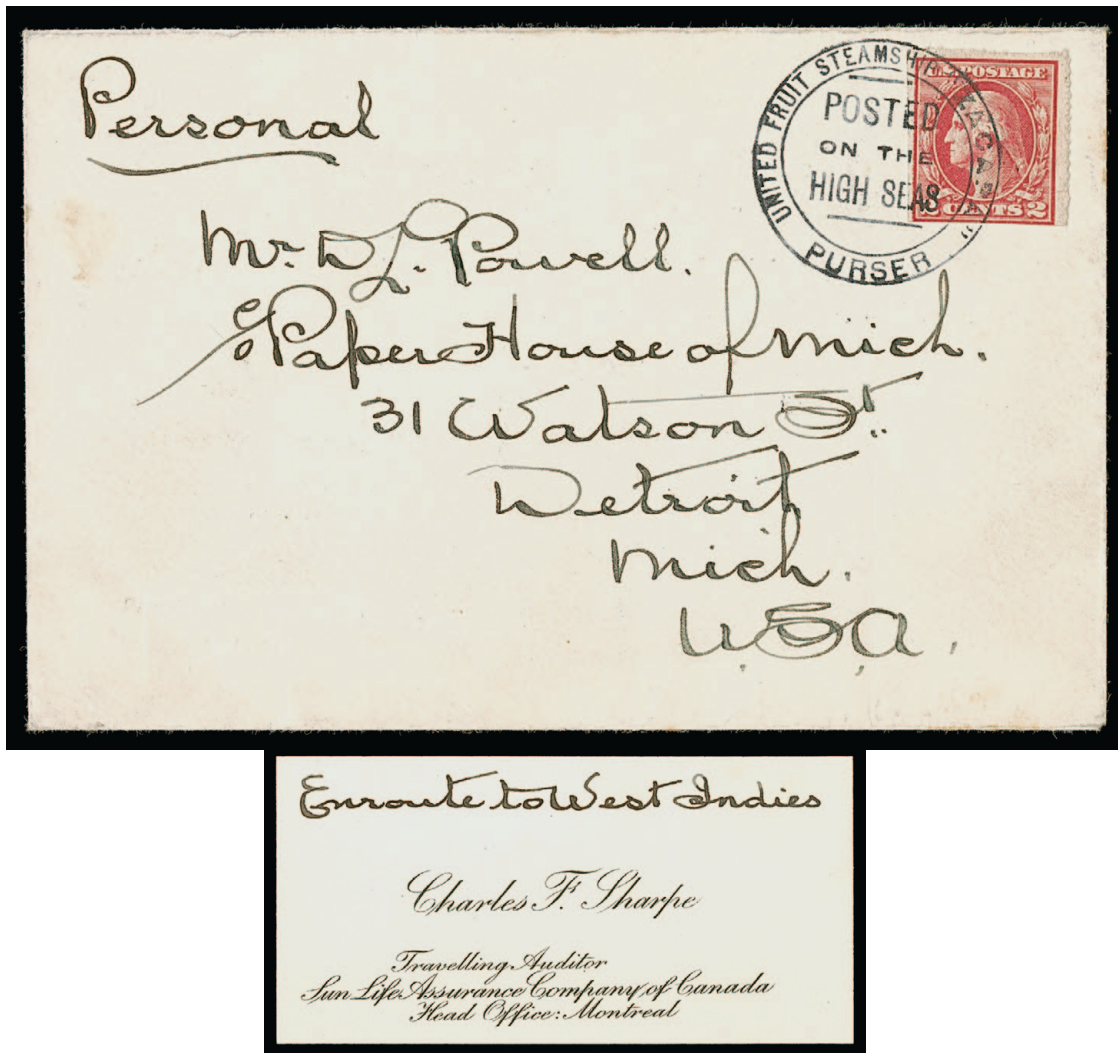 Personal
UNITED FRUIT STEAMSHIP "ZACAPA"
POSTED
ON THE
HIGH SEAS
PURSER
U.S. POSTAGE
2 CENTS 2
Mr. D L. Powell.
c/o Paper House of Mich.
31 Watson St.
Detroit
Mich.
U.S.A.
Enroute to West Indies
Charles F. Sharpe
Travelling Auditor
Sun Life Assurance Company of Canada
Head Office: Montreal